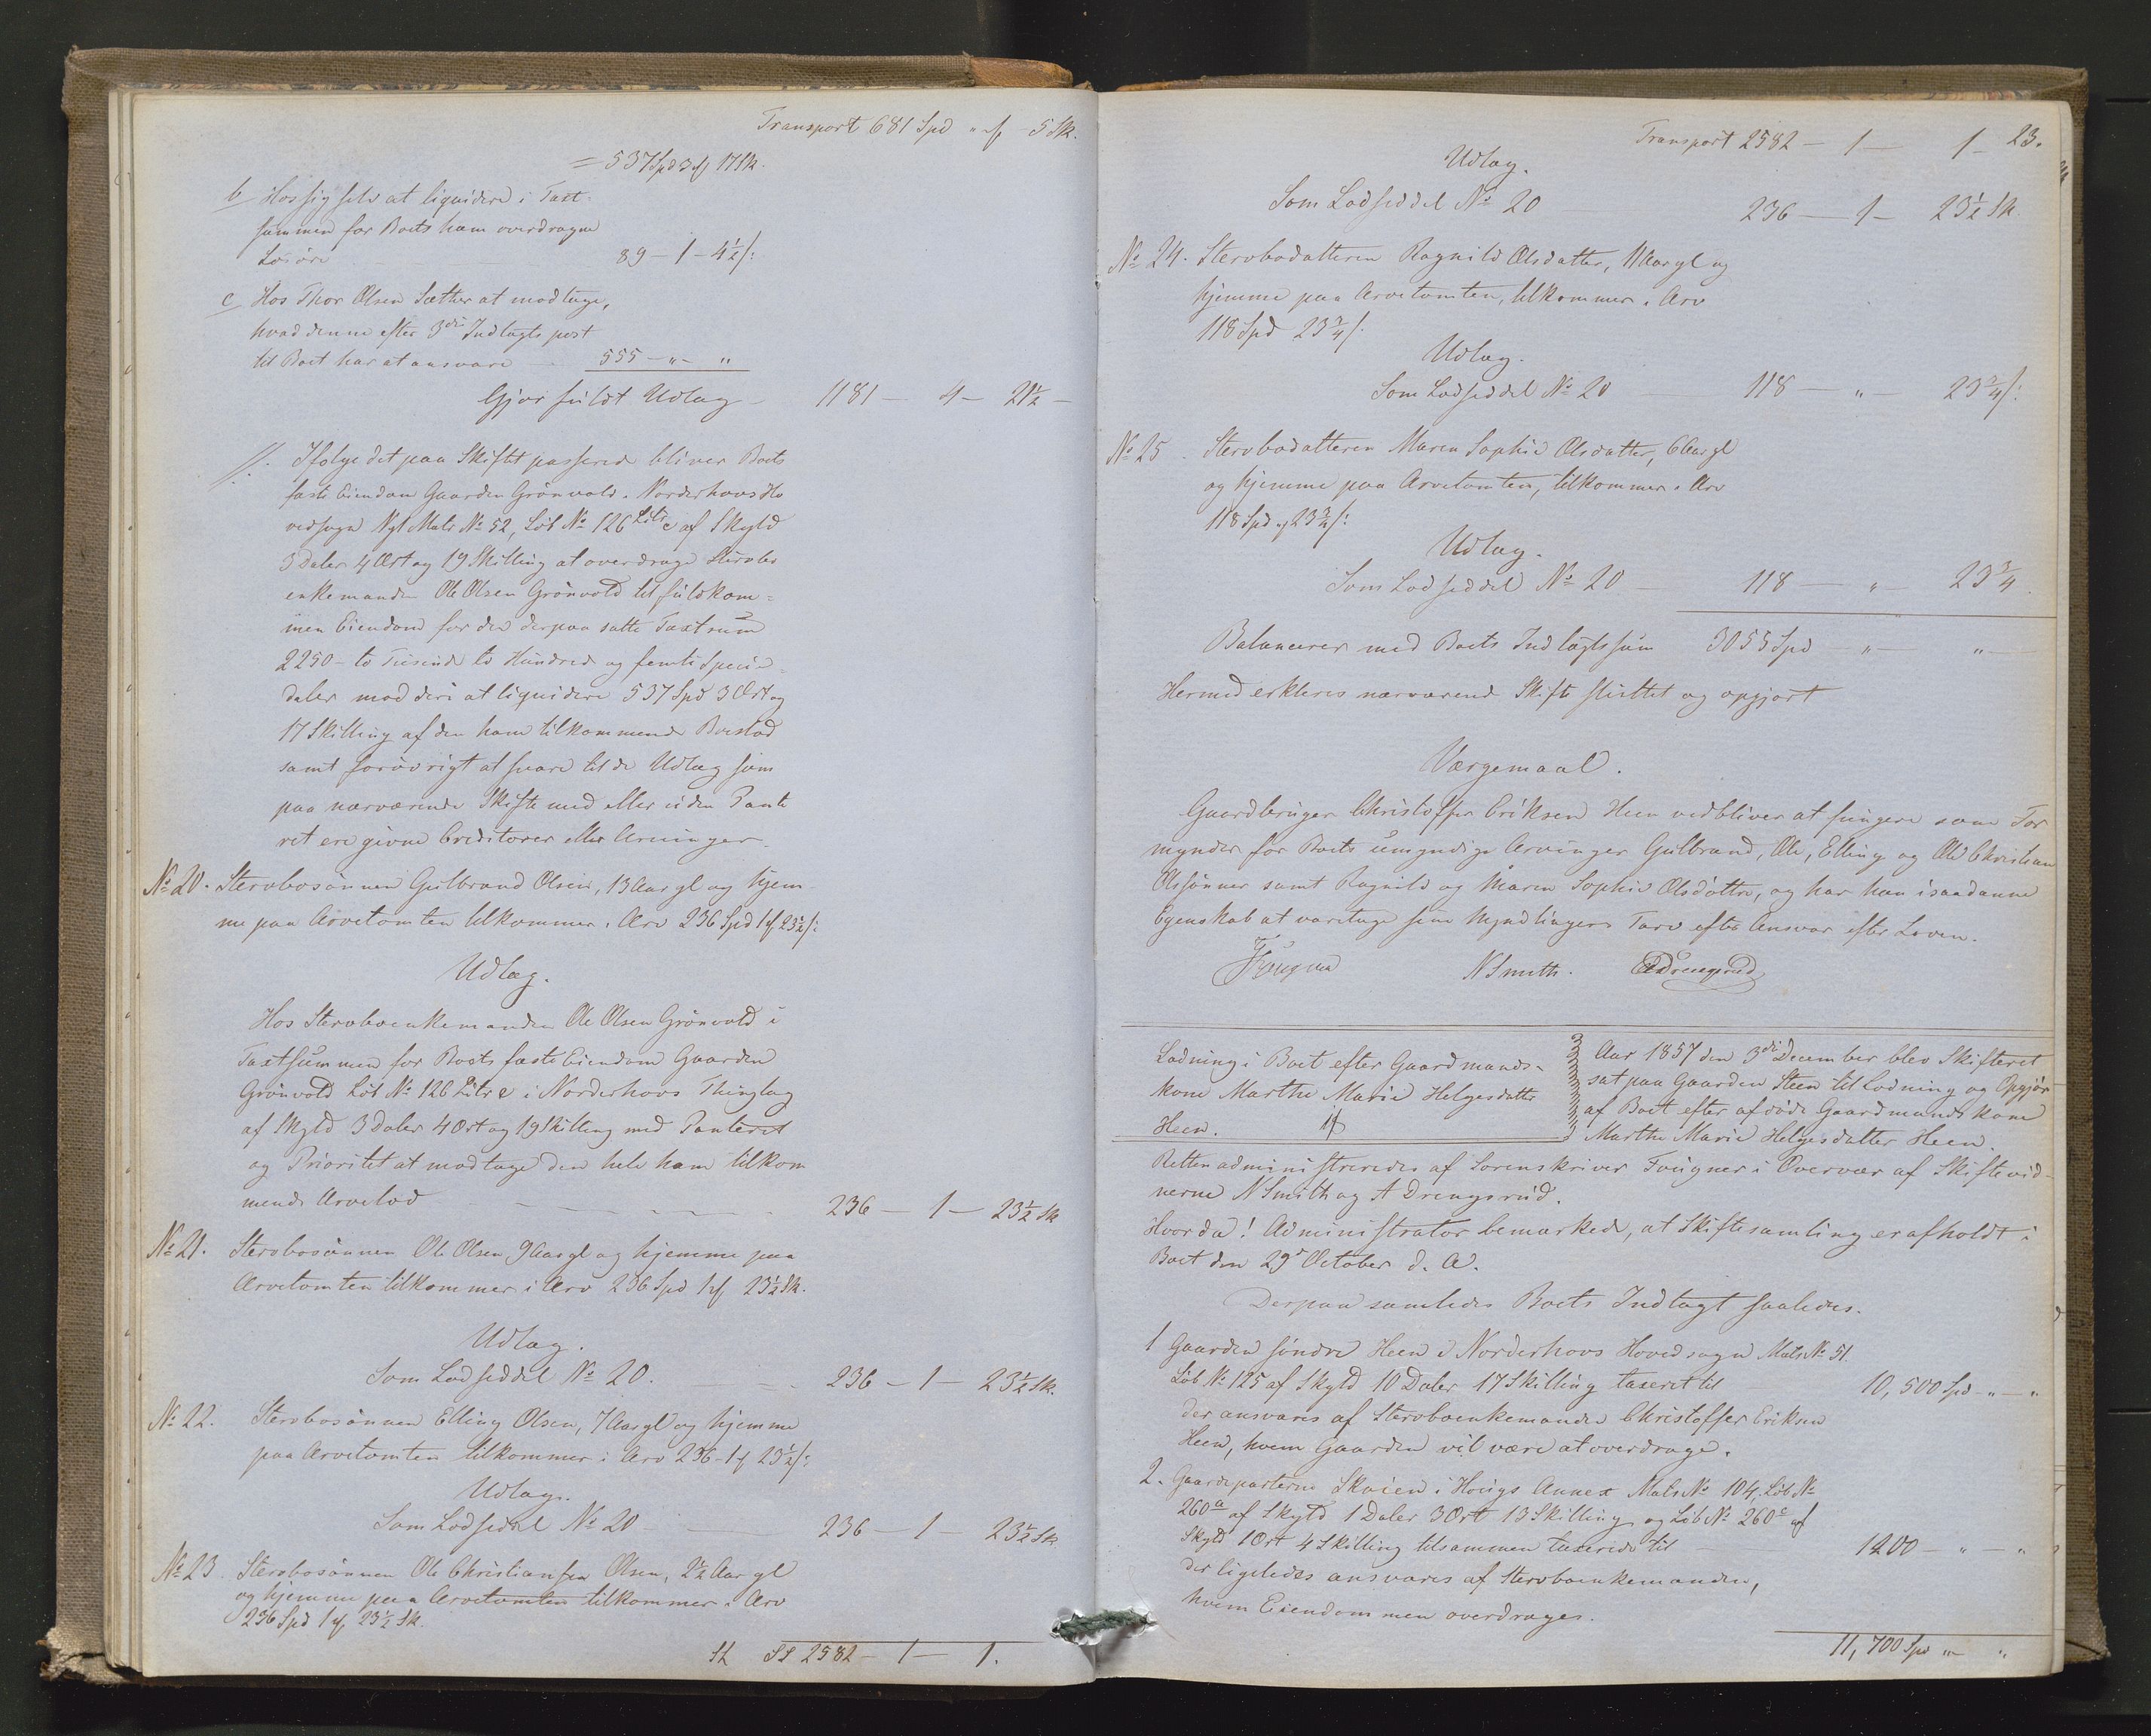 Transport 681 Spd " ℔ - 5 Sk.
= 537 Spd 3 ℔ 17 Sk.
b Hos sig selv at liquidere i Taxt-
summen for Boets ham overdragne
Løsøre 89 - 1 - 4½ /:
c Hos Thor Olsen Sæther at modtage,
hvad denne efter 3die Indtægts post
til Boet har at ansvare 555 - " - "
Gjør fuldt Udlæg - 1181 - 4 - 21½ -
//. Ifølge det paa Skiftet passerede bliver Boets
faste Eiendom Gaarden Grönvold i Norderhovs Ho
vedsogn Nye Matr No 52, Løb No 126 Litr c af Skyld
3 Daler 4 Ort og 19 Skilling at overdrage Stervbo
enkemanden Ole Olsen Grönvold til fuldkom-
men Eiendom for den derpaa satte Taxtsum
2250 - to Tusinde to Hundrede og femti Specie-
daler mod deri at liquidere 537 Spd 3 Ort og
17 Skilling af den ham tilkommende Boeslod
samt forøvrigt at svare til de Udlæg som
paa nærværende Skifte med eller uden Pante
ret ere givne Creditorer eller Arvinger.
No 20. Stervbosönnen Gulbrand Olsen, 13 Aar gl og hjem-
me paa Arvetomten tilkommer i Arv 236 Spd 1 ℔ 23½ /:
Udlæg.
Hos Stervboenkemanden Ole Olsen Grönvold i
Taxtsummen for Boets faste Eiendom Gaarden
Grönvold Löb No 126 Litr c i Norderhovs Thinglag
af Skyld 3 Daler 4 Ort og 19 Skilling med Panteret
og Prioritet at modtage den hele ham tilkom
mende Arvelod 236 - 1 - 23½ Sk
No 21. Stervbosönnen Ole Olsen 9 Aar gl og hjemme paa
Arvetomten tilkommer i Arv 236 Spd 1 ℔ 23½ Sk.
Udlæg.
Som Lodseddel No 20. 236 - 1 - 23½ Sk.
No 22. Stervbosönnen Elling Olsen, 7 Aar gl og hjemme
paa Arvetomten tilkommer i Arv 236 - 1 ℔ 23½ /:
Udlæg.
Som Lodseddel No 20 - 236 - 1 - 23½ Sk
No 23 Stervbosönnen Ole Christiansen Olsen, 2½ Aar gl
og hjemme paa Arvetomten tilkommer i Arv
236 Spd 1 ℔ 23½ Sk.
2582 - 1 - 1.
Transport 2582 - 1 - 1 - 23.
Udlæg.
Som Lodseddel No 20 236 - 1 - 23½ Sk
No 24. Stervbodatteren Ragnild Olsdatter, 11 Aar gl og
hjemme paa Arvetomten, tilkommer i Arv
118 Spd 23¾ /:
Udlæg.
Som Lodseddel No 20 118 - " - 23¾ /:
No 25 Stervbodatteren Maren Sophie Olsdatter, 6 Aar gl
og hjemme paa Arvetomten, tilkommer i Arv
118 Spd og 23¾ /:
Udlæg.
Som Lodseddel No 20 - 118 - " - 23¾
Balancerer med Boets Indtægtssum 3055 Spd - " - " -
Hermed erkleres nærværende Skifte sluttet og opgjort
Værgemaal.
Gaardbruger Christoffer Eriksen Heen vedbliver at fungere som For
mynder for Boets umyndige Arvinger Gulbrand, Ole, Elling og Ole Christian
Olssønner samt Ragnild og Maren Sophie Olsdöttre, og har han i saadanne
Egenskab at varetage sine Myndlingers Tarv efter Ansvar efter Loven.
Fougner NSmith. ADrengsrud
Lodning i Boet efter Gaardmands-
kone Marthe Marie Helgesdatter
Heen.
Aar 1857 den 3die December blev Skifteret
sat paa Gaarden Heen til Lodning og Opgjör
af Boet efter afdöde Gaardmandskone
Marthe Marie Helgesdatter Heen.
Retten administreredes af Sorenskriver Fougner i Overvær af Skiftevid-
nerne N Smith og A Drengsrud.
Hvorda! Administrator bemærkede, at Skiftesamling er afholdt i
Boet den 29d October d. A.
Derpaa samledes Boets Indtægt saaledes.
1 Gaarden söndre Heen i Norderhovs Hovedsogn Matr No 51.
Löb No 125 af Skyld 10 Daler 17 Skilling taxeret til 10,500 Spd - " - "
der ansvares af Stervboenkemanden Christoffer Eriksen
Heen, hvem Gaarden vil være at overdrage.
2. Gaardeparterne Skoien i Hougs Annex Matr No 104, Löb No
260a af Skyld 1 Daler 3 Ort 13 Skilling og Löb No 260c af
Skyld 1 Ort 4 Skilling tilsammen taxerede til - 1200 - " - "
der ligeledes ansvares af Stervboenkemanden,
hvem Eiendommen overdrages.
11,700 Spd " - "